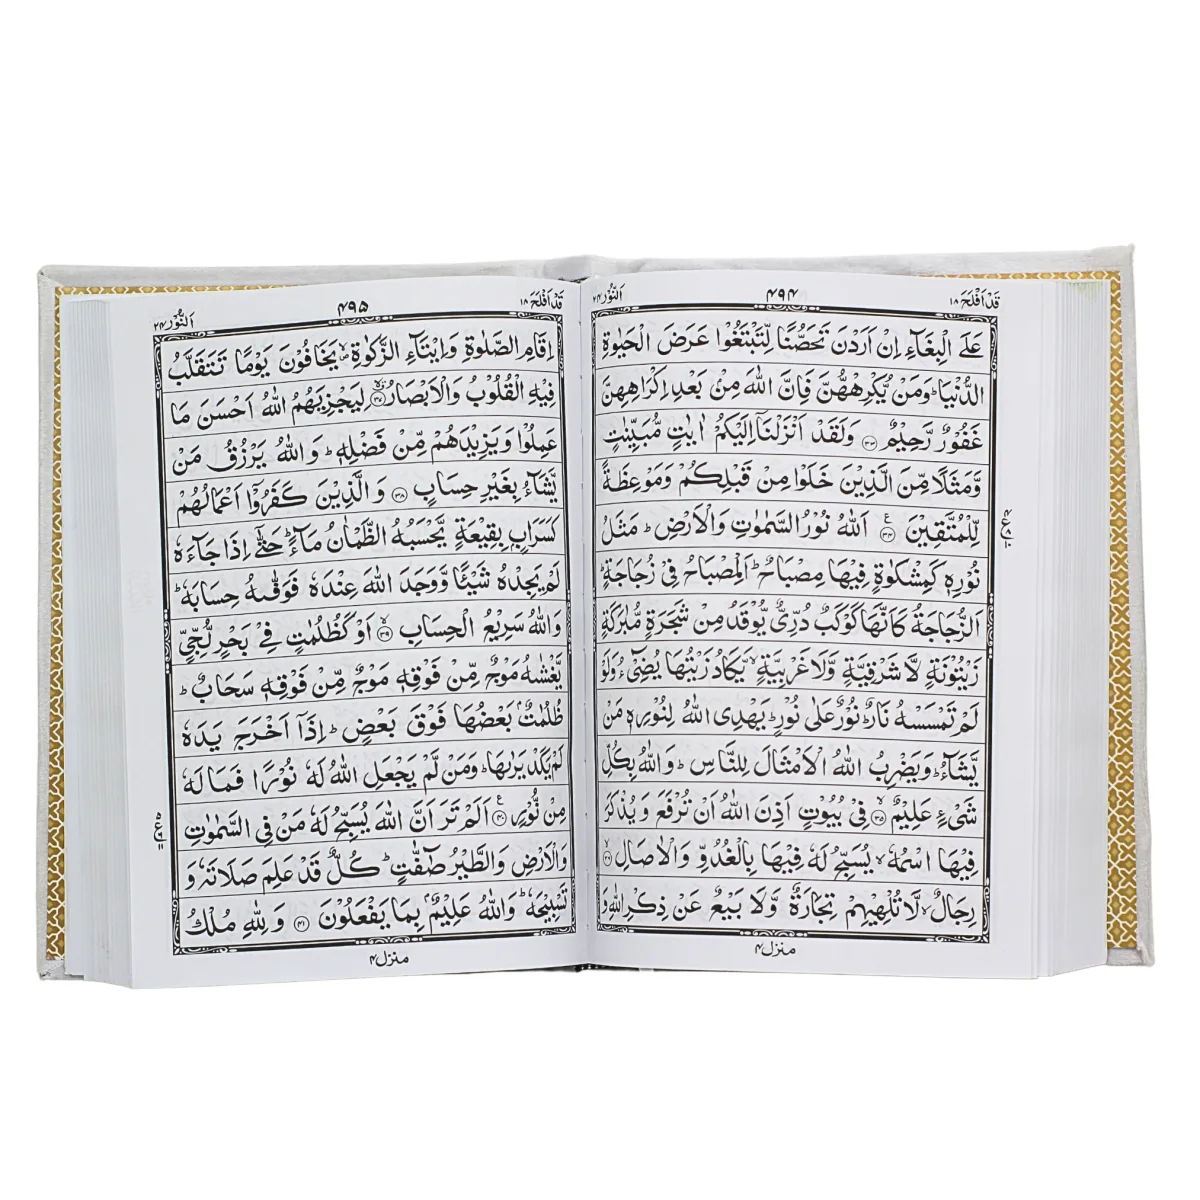 قَدْ اَفْلَحَ ١٨
۴۹۴
اَلنُّوْر ٢۴
عَلَى الْبِغَآءِ اِنْ اَرَدْنَ تَحَصُّنًا لِّتَبْتَغُوْا عَرَضَ الْحَيٰوةِ
الدُّنْيَا ؕ وَمَنْ يُّكْرِهْهُّنَّ فَاِنَّ اللّٰهَ مِنْۢ بَعْدِ اِكْرَاهِهِنَّ
غَفُوْرٌ رَّحِيْمٌ ﴿٣٣﴾ وَلَقَدْ اَنْزَلْنَاۤ اِلَيْكُمْ اٰيٰتٍ مُّبَيِّنٰتٍ
وَّمَثَلًا مِّنَ الَّذِيْنَ خَلَوْا مِنْ قَبْلِكُمْ وَمَوْعِظَةً
لِّلْمُتَّقِيْنَ ﴿٣۴﴾ ع اَللّٰهُ نُوْرُ السَّمٰوٰتِ وَالْاَرْضِ ؕ مَثَلُ
نُوْرِهٖ كَمِشْكٰوةٍ فِيْهَا مِصْبَاحٌ ؕ اَلْمِصْبَاحُ فِيْ زُجَاجَةٍ ؕ
اَلزُّجَاجَةُ كَاَنَّهَا كَوْكَبٌ دُرِّيٌّ يُّوْقَدُ مِنْ شَجَرَةٍ مُّبٰرَكَةٍ
زَيْتُوْنَةٍ لَّا شَرْقِيَّةٍ وَّلَا غَرْبِيَّةٍ ۙ يَّكَادُ زَيْتُهَا يُضِيْٓءُ وَلَوْ
لَمْ تَمْسَسْهُ نَارٌ ؕ نُوْرٌ عَلٰى نُوْرٍ ؕ يَهْدِى اللّٰهُ لِنُوْرِهٖ مَنْ
يَّشَآءُ ؕ وَيَضْرِبُ اللّٰهُ الْاَمْثَالَ لِلنَّاسِ ؕ وَاللّٰهُ بِكُلِّ
شَيْءٍ عَلِيْمٌ ﴿٣٥﴾ ۙ فِيْ بُيُوْتٍ اَذِنَ اللّٰهُ اَنْ تُرْفَعَ وَيُذْكَرَ
فِيْهَا اسْمُهٗ ۙ يُسَبِّحُ لَهٗ فِيْهَا بِالْغُدُوِّ وَالْاٰصَالِ ﴿٣٦﴾ ۙ
رِجَالٌ ۙ لَّا تُلْهِيْهِمْ تِجَارَةٌ وَّلَا بَيْعٌ عَنْ ذِكْرِ اللّٰهِ وَ
منزل ۴
قَدْ اَفْلَحَ ١٨
۴۹۵
اَلنُّوْر ٢۴
اِقَامِ الصَّلٰوةِ وَاِيْتَآءِ الزَّكٰوةِ ۙ يَخَافُوْنَ يَوْمًا تَتَقَلَّبُ
فِيْهِ الْقُلُوْبُ وَالْاَبْصَارُ ﴿٣٧﴾ ۙ لِيَجْزِيَهُمُ اللّٰهُ اَحْسَنَ مَا
عَمِلُوْا وَيَزِيْدَهُمْ مِّنْ فَضْلِهٖ ؕ وَاللّٰهُ يَرْزُقُ مَنْ
يَّشَآءُ بِغَيْرِ حِسَابٍ ﴿٣٨﴾ وَالَّذِيْنَ كَفَرُوْۤا اَعْمَالُهُمْ
كَسَرَابٍۭ بِقِيْعَةٍ يَّحْسَبُهُ الظَّمْاٰنُ مَآءً ؕ حَتّٰۤى اِذَا جَآءَهٗ
لَمْ يَجِدْهُ شَيْئًا وَّوَجَدَ اللّٰهَ عِنْدَهٗ فَوَفّٰىهُ حِسَابَهٗ ؕ
وَاللّٰهُ سَرِيْعُ الْحِسَابِ ﴿٣٩﴾ ۙ اَوْ كَظُلُمٰتٍ فِيْ بَحْرٍ لُّجِّيٍّ
يَّغْشٰىهُ مَوْجٌ مِّنْ فَوْقِهٖ مَوْجٌ مِّنْ فَوْقِهٖ سَحَابٌ ؕ
ظُلُمٰتٌۢ بَعْضُهَا فَوْقَ بَعْضٍ ؕ اِذَاۤ اَخْرَجَ يَدَهٗ
لَمْ يَكَدْ يَرٰىهَا ؕ وَمَنْ لَّمْ يَجْعَلِ اللّٰهُ لَهٗ نُوْرًا فَمَا لَهٗ
مِنْ نُّوْرٍ ﴿۴٠﴾ ع اَلَمْ تَرَ اَنَّ اللّٰهَ يُسَبِّحُ لَهٗ مَنْ فِى السَّمٰوٰتِ
وَالْاَرْضِ وَالطَّيْرُ صٰٓفّٰتٍ ؕ كُلٌّ قَدْ عَلِمَ صَلَاتَهٗ وَ
تَسْبِيْحَهٗ ؕ وَاللّٰهُ عَلِيْمٌۢ بِمَا يَفْعَلُوْنَ ﴿۴١﴾ وَلِلّٰهِ مُلْكُ
منزل ۴